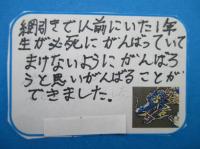 綱引きで1人前にいた1年
生が必死にがんばっていて
まけないようにがんばろ
うと思いがんばることが
できました。